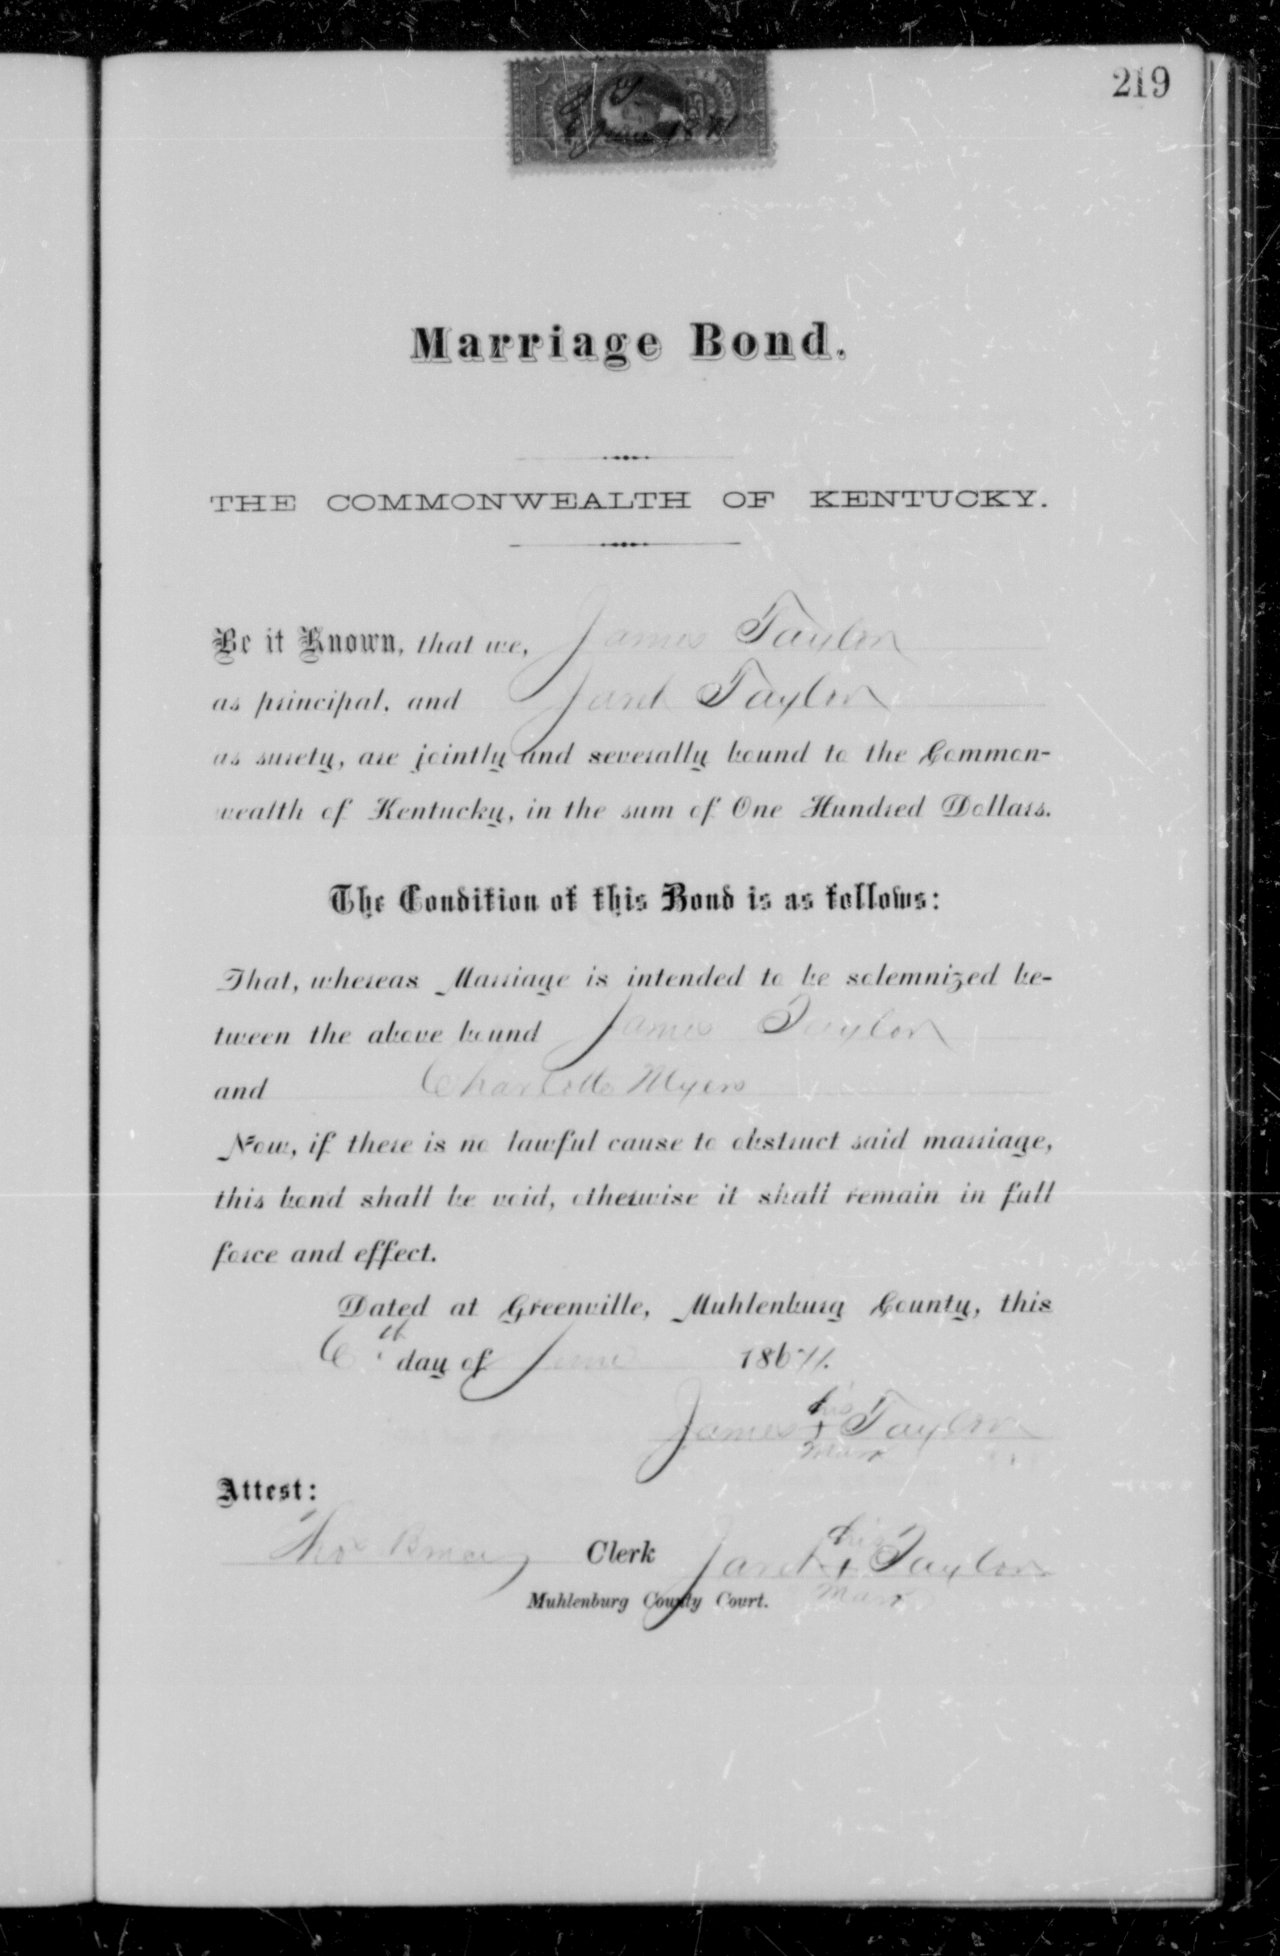 219
June 1871
Marriage Bond.
THE COMMONWEALTH OF KENTUCKY.
Be it Known, that we, James Taylor
as principal, and Jaret Taylor
as surety, are jointly and severally bound to the Common-
wealth of Kentucky, in the sum of One Hundred Dollars.
The Condition of this Bond is as follows:
That, whereas Marriage is intended to be solemnized be-
tween the above bound James Taylor
and Charlotte Myers
Now, if there is no lawful cause to obstruct said marriage,
this bond shall be void, otherwise it shall remain in full
force and effect.
Dated at Greenville, Muhlenburg County, this
6th day of June 1871.
his
James + Taylor
mark
Attest:
his
Tho Bruce Clerk Jaret + Taylor
Muhlenburg County Court. mark